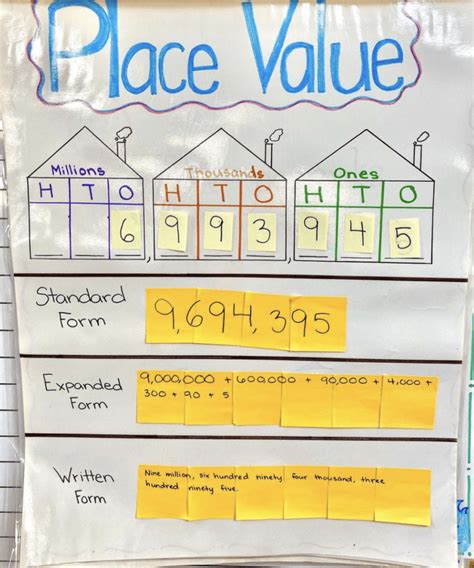 Place Value
Millions Thousands Ones
H T O H T O H T O
6, 9 9 3, 9 4 5
Standard
Form
9,694,395
Expanded
Form
9,000,000 + 600,000 + 90,000 + 4,000 +
300 + 90 + 5
Written
Form
Nine million, six hundred ninety four thousand, three
hundred ninety five.